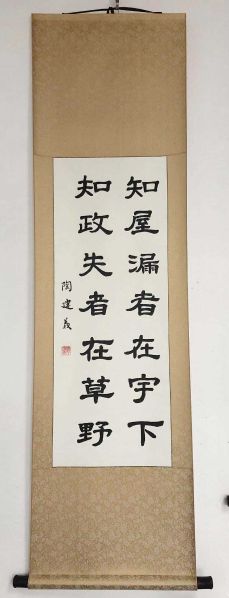 知屋漏者在宇下
知政失者在草野
陶建义